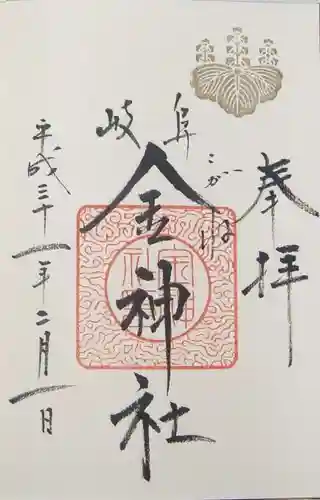 奉拝
岐阜
こがね
金神社
平成三十一年二月一日